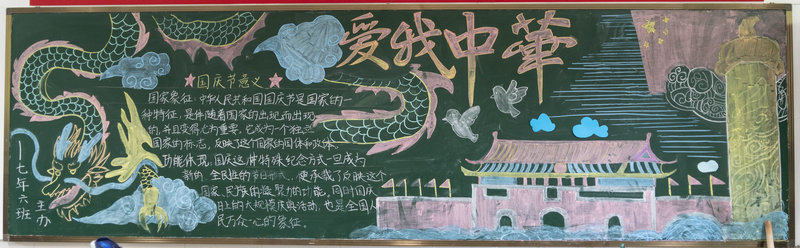 爱我中華
★国庆节意义★
国家象征:中华人民共和国国庆节是国家的一
种特征,是伴随着国家的出现而出现
的,并且变得尤为重要。它成为一个独立
国家的标志,反映这个国家的国体和政体。
功能体现:国庆这种特殊纪念方式一旦成为
新的、全民性的节日形式,便承载了反映这个
国家、民族的凝聚力的功能,同时国庆
日上的大规模庆典活动,也是全国人
民万众一心的象征。
——七年六班
主办